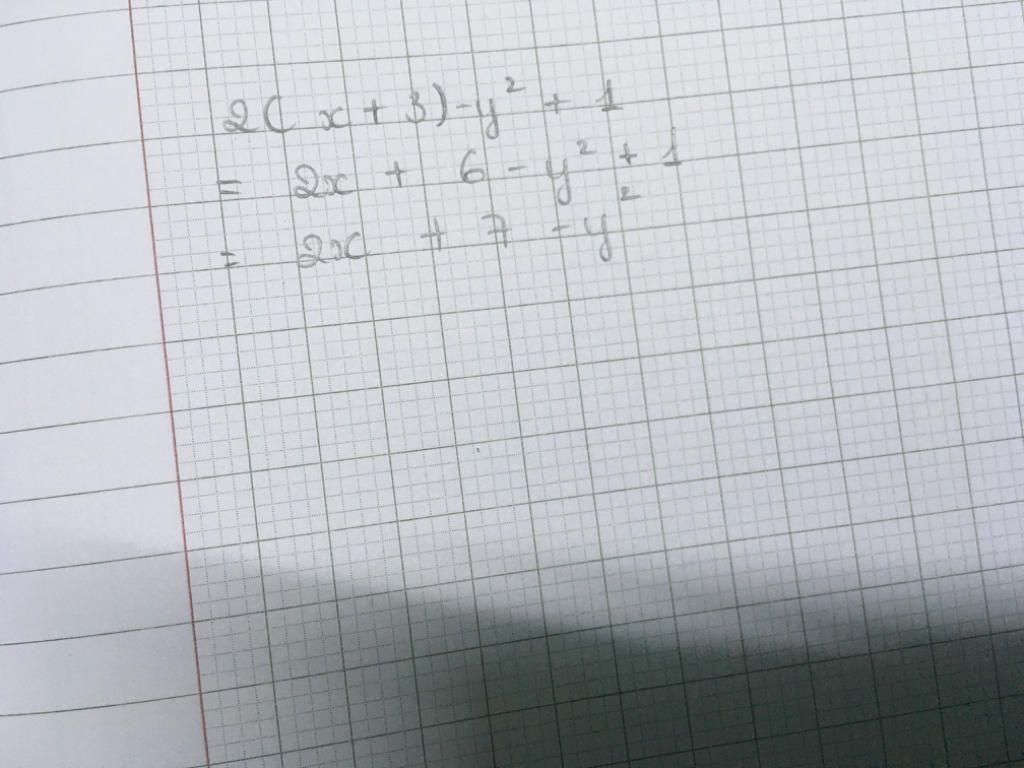 2( x + 3) - y² + 1
= 2x + 6 - y² + 1
= 2x + 7 - y²